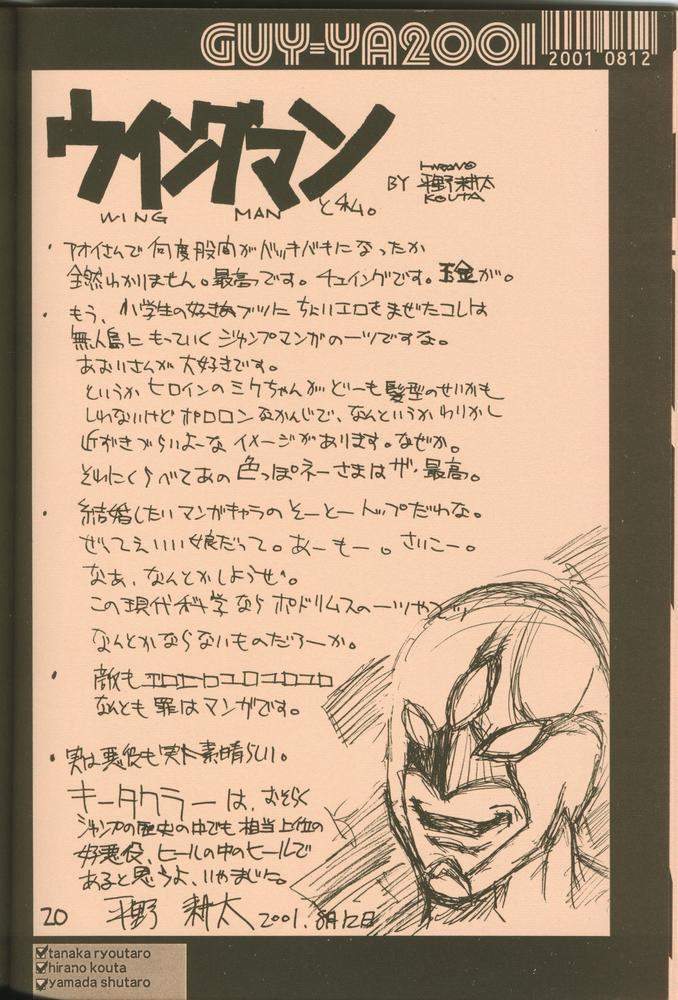 GUY-YA2001
2001 0812
ウイングマン
WING MAN と私。
BY 平野耕太
HIRANO
KOUTA
・アオイさんで何度股間がバッキバキになったか
全然わかりません。最高です。チェイングです。玉金が。
・もう、小学生の好きなブツに ちょいエロをまぜたコレは
無人島にもっていくジャンプマンガの一ツですな。
あおいさんが大好きです。
というかヒロインのミクちゃんがどーも髪型のせいかも
しれないけどポロロンなかんじで、なんというかわりかし
近づきづらいよーなイメージがあります。なぜか。
それにくらべてあの色っぽネーさまはザ・最高。
・結婚したいマンガキャラのそーとートップだわな。
ぜってえいい娘だって。あーもー。さいこー。
なあ、なんとかしようぜ。
この現代科学ならポドリムスの一ツやフ
なんとかならないものだろーか。
・敵もエロエロエロエロエロ
なんとも罪はマンガです。
・実は悪役も実に素晴らしい。
キータクラーは、おそらく
ジャンプの歴史の中でも相当上位の
好悪役、ヒールの中のヒールで
あると思うよ、いやまじに。
平野 耕太 2001.8月12日
20
tanaka ryoutaro
hirano kouta
yamada shutaro